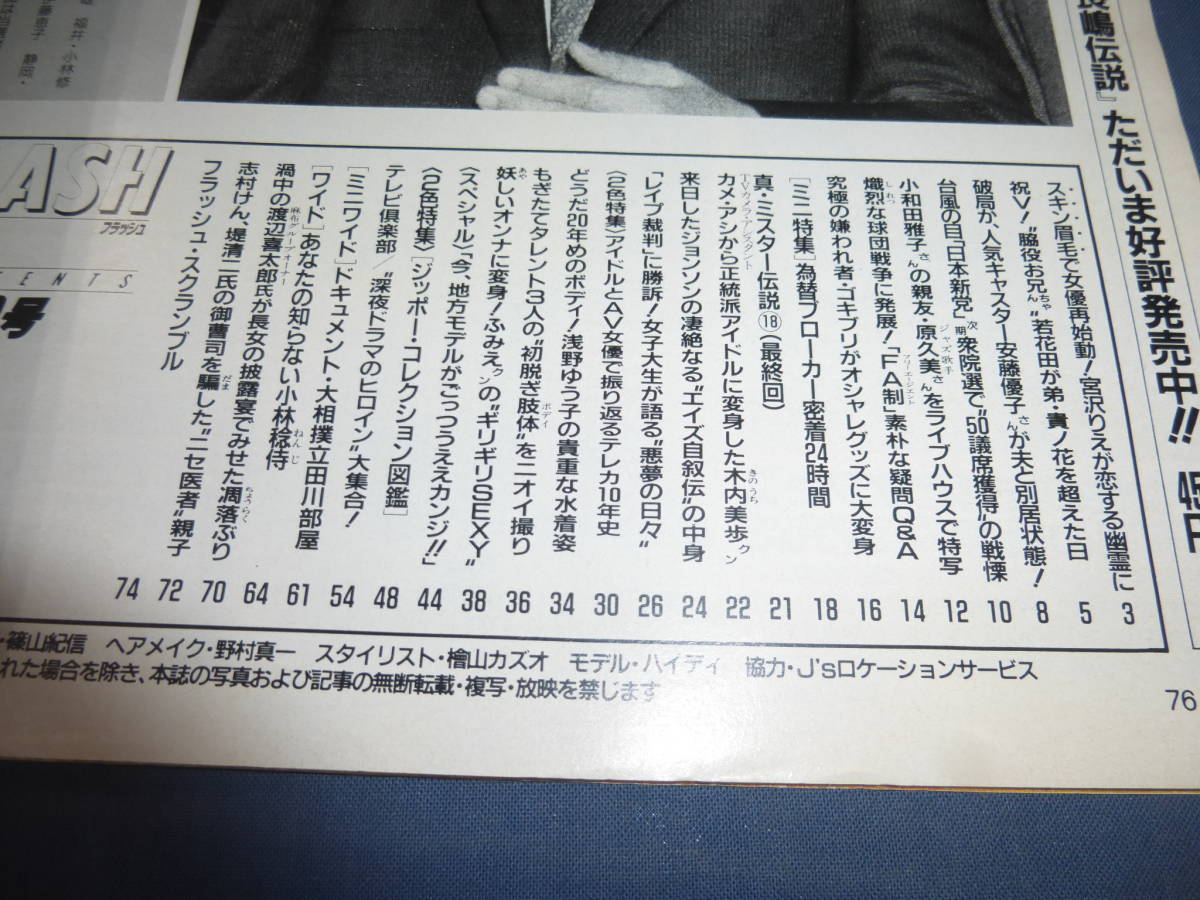 長嶋伝説』ただいま好評発売中!!
ASH
フラッシュ
ENTS
号
スキン眉毛で女優再始動!宮沢りえが恋する幽霊に 3
祝V!〝脇役お兄ちゃん〟若花田が弟・貴ノ花を超えた日 5
破局か、人気キャスター安藤優子さんが夫と別居状態! 8
台風の目「日本新党」次期衆院選で〝50議席獲得〟の戦慄 10
小和田雅子さんの親友・原久美さんをライブハウスで特写 12
ジャズ歌手
熾烈な球団戦争に発展!「FA制」素朴な疑問Q&A 14
しれつ
フリーエージェント
究極の嫌われ者・ゴキブリがオシャレグッズに大変身 16
[ミニ特集]為替ブローカー密着24時間 18
真・ミスター伝説⑱(最終回) 21
カメ・アシから正統派アイドルに変身した木内美歩クン 22
TVカメラ・アシスタント
きのうち
来日したジョンソンの凄絶なる〝エイズ自叙伝〟の中身 24
「レイプ裁判」に勝訴!女子大生が語る〝悪夢の日々〟 26
〈2色特集〉アイドルとAV女優で振り返るテレカ10年史 30
どうだ20年めのボディ!浅野ゆう子の貴重な水着姿 34
もぎたてタレント3人の〝初脱ぎ肢体〟をニオイ撮り 36
ボディ
妖しいオンナに変身!ふみえクンの〝ギリギリSEXY〟 38
あや
〈スペシャル〉「今、地方モデルがごっつうええカンジ!!」 44
〈2色特集〉[ジッポー・コレクション図鑑] 48
テレビ倶楽部/〝深夜ドラマのヒロイン〟大集合! 54
[ミニワイド]ドキュメント・大相撲立田川部屋 61
[ワイド]あなたの知らない小林稔侍 64
ねんじ
渦中の渡辺喜太郎氏が長女の披露宴でみせた凋落ぶり 70
麻布グループオーナー
ちょうらく
志村けん、堤清二氏の御曹司を騙した〝ニセ医者〟親子 72
だま
フラッシュ・スクランブル 74
・篠山紀信 ヘアメイク・野村真一 スタイリスト・檜山カズオ モデル・ハイディ 協力・J'sロケーションサービス
れた場合を除き、本誌の写真および記事の無断転載・複写・放映を禁じます
76